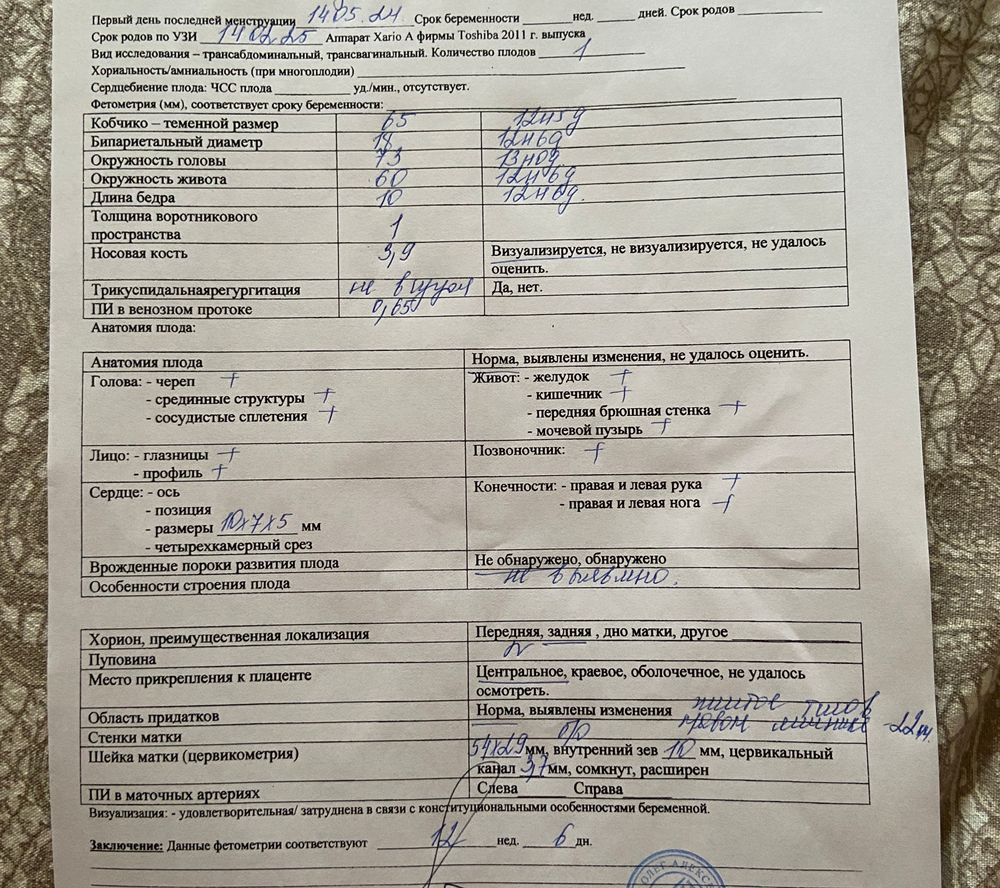 Первый день последней менструации 14.05.24. Срок беременности ______ нед. _____ дней. Срок родов __________
Срок родов по УЗИ 14.02.25 Аппарат Xario А фирмы Toshiba 2011 г. выпуска
Вид исследования – трансабдоминальный, трансвагинальный. Количество плодов 1
Хориальность/амниальность (при многоплодии) ____________
Сердцебиение плода: ЧСС плода __________ уд./мин., отсутствует.
Фетометрия (мм), соответствует сроку беременности: ____________
Кобчико – теменной размер 65 12н5д
Бипариетальный диаметр 18 12н6д
Окружность головы 73 13н0д
Окружность живота 60 12н6д
Длина бедра 10 12н6д.
Толщина воротникового
пространства 1
Носовая кость 3,9 Визуализируется, не визуализируется, не удалось
оценить.
Трикуспидальнаярегургитация не Да, нет.
ПИ в венозном протоке 0,65
Анатомия плода:
Анатомия плода Норма, выявлены изменения, не удалось оценить.
Голова: - череп + Живот: - желудок +
- срединные структуры + - кишечник +
- сосудистые сплетения + - передняя брюшная стенка +
- мочевой пузырь +
Лицо: - глазницы + Позвоночник: +
- профиль +
Сердце: - ось Конечности: - правая и левая рука +
- позиция - правая и левая нога +
- размеры 10х7х5 мм
- четырехкамерный срез
Врожденные пороки развития плода Не обнаружено, обнаружено
Особенности строения плода не выявлено.
Хорион, преимущественная локализация Передняя, задняя , дно матки, другое ____________
Пуповина
Место прикрепления к плаценте Центральное, краевое, оболочечное, не удалось
осмотреть.
Область придатков Норма, выявлены изменения желтое тело в
правом яичнике 22мм.
Стенки матки б/о
Шейка матки (цервикометрия) 54х29 мм, внутренний зев 10 мм, цервикальный
канал 3,7 мм, сомкнут, расширен
ПИ в маточных артериях Слева ______ Справа ______
Визуализация: - удовлетворительная/ затруднена в связи с конституциональными особенностями беременной.
Заключение: Данные фетометрии соответствуют 12 нед. 6 дн.
ОЛЕГ АЛЕКСЕ